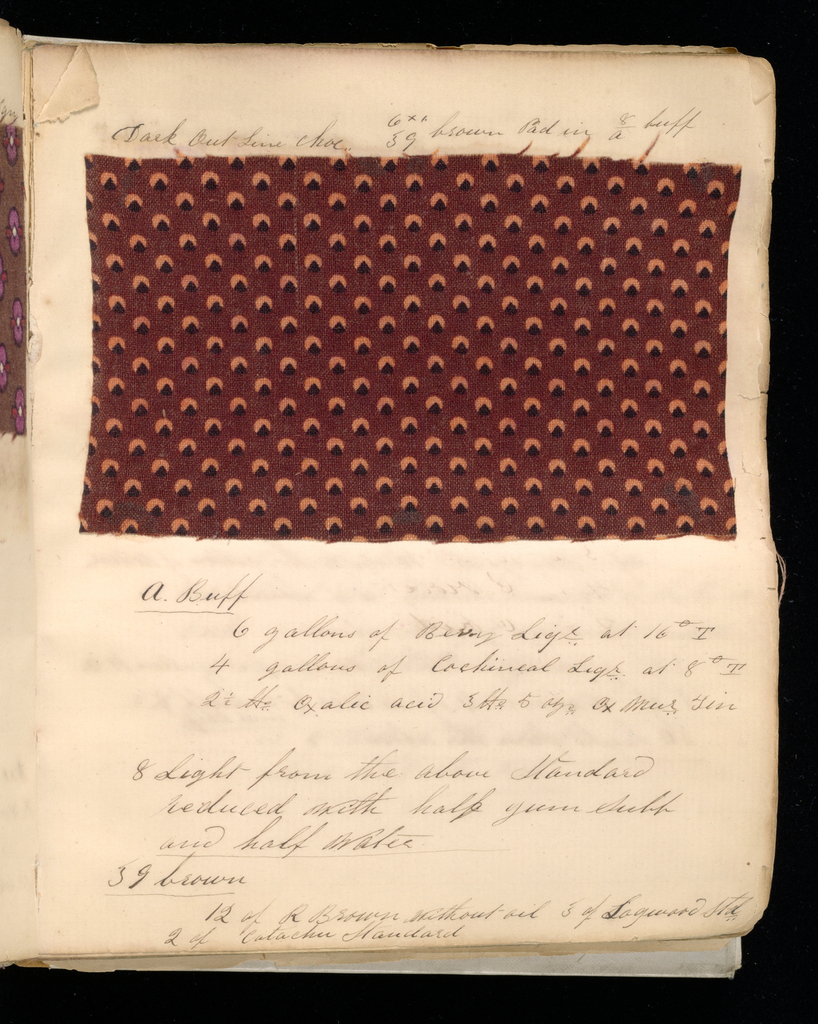 Dark Out Line Choc. 6xx 59 brown Pad in 8/a buff
a. Buff
6 gallons of Berry Liqr. at 16° T
4 gallons of Cochineal Liqr. at 8° T
2½ lbs Oxalic acid 3 lbs 5 ozs Ox Mur. Tin
8 Light from the above Standard
reduced with half gum subs
and half water
59 brown
12 of R Brown without oil 3 of Logwood Std
2 of Catachu Standard